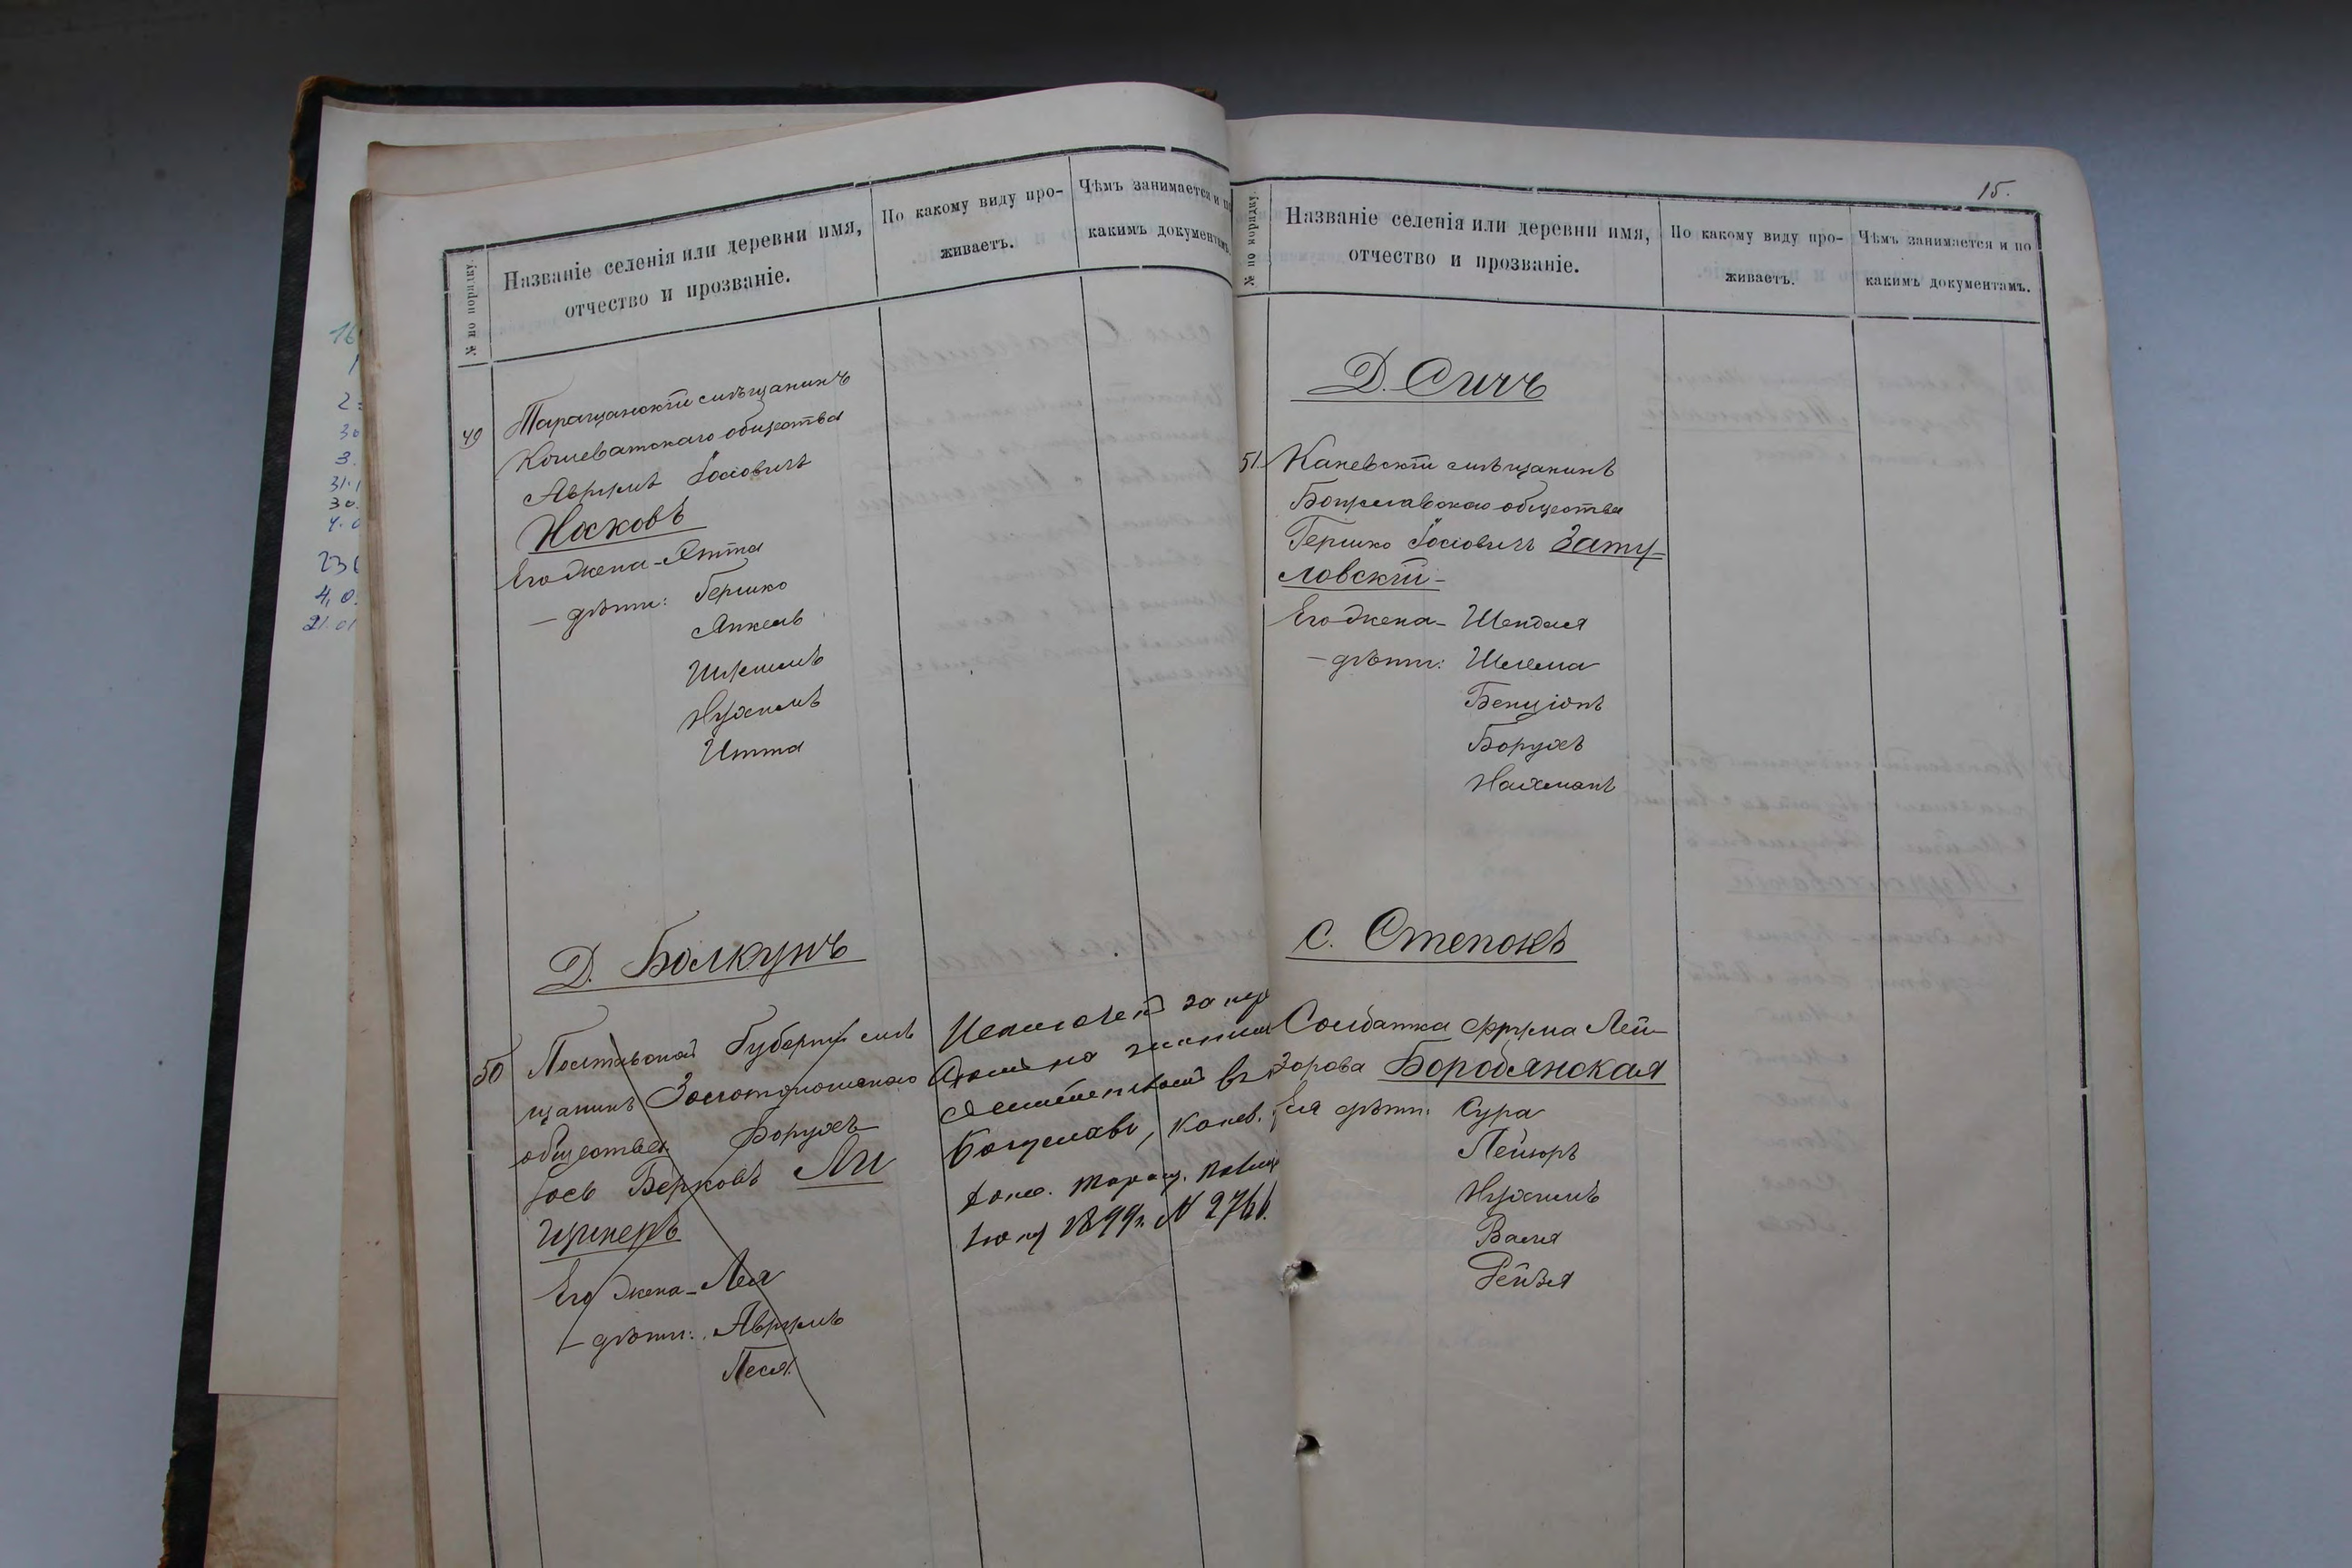 № по порядку.
Названіе селенія или деревни имя,
отчество и прозваніе.
По какому виду про-
живаетъ.
Чѣмъ занимается и по
какимъ документамъ.
49
Таращанскій мѣщанинъ
Кошеватскаго общества
Аврумъ Іосіовичъ
Носковъ
Его жена - Этта
— дѣти: Гершко
Янкель
Нухимъ
Итта
Д. Болкунъ
50
Полтавской Губерніи мѣ
щанинъ Золотоношскаго
общества Борухъ
Іось Берковъ Ли
Его жена - Лея
— дѣти: Аврумъ
Песя
за
на
въ
Богуславъ, Канев.
Таращ.
1899 г. №
15.
№ по порядку.
Названіе селенія или деревни имя,
отчество и прозваніе.
По какому виду про-
живаетъ.
Чѣмъ занимается и по
какимъ документамъ.
Д. Сичъ
51.
Каневскій мѣщанинъ
Богуславскаго общества
Гершко Іосіовичъ Зату-
ловскій -
Его жена - Шендля
— дѣти: Шлема
Бенціонъ
Борухъ
Нахманъ
С. Степокъ
Солдатка Фрума Лей-
зорова Бородянская
Ея дѣти: Сура
Лейзоръ
Нухимъ
Рейзя